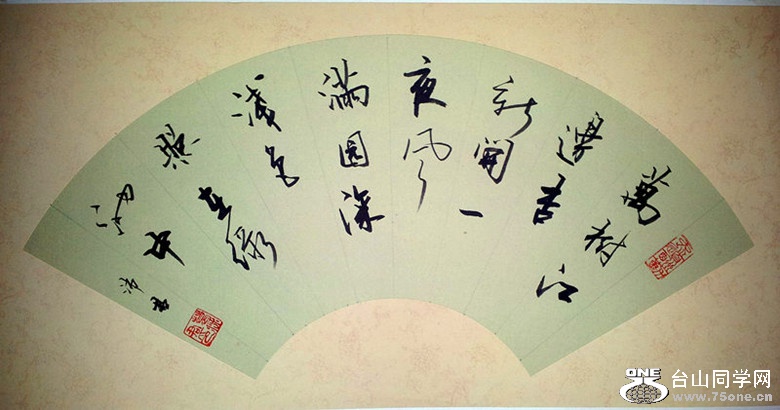 萬樹江
邊杏
新開一
夜风
满園深
淺色
照在綠
波中
ONE 台山同学网
www.75one.cn